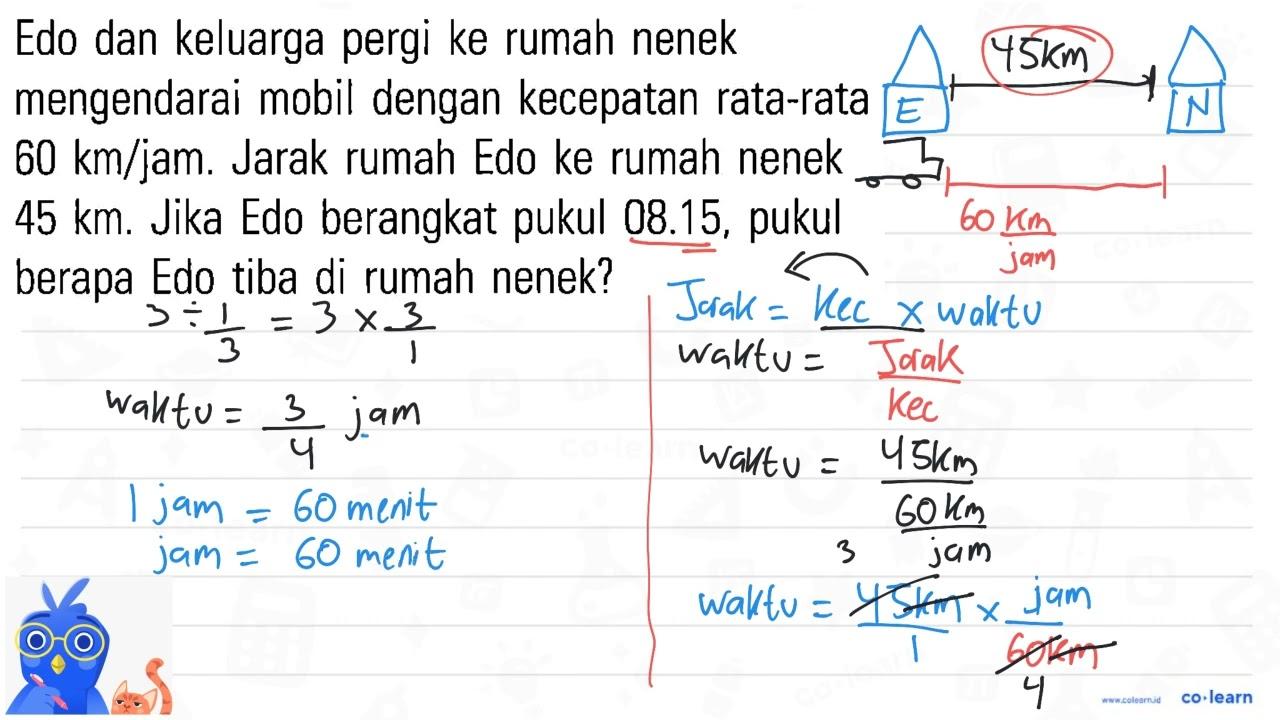 Edo dan keluarga pergi ke rumah nenek
mengendarai mobil dengan kecepatan rata-rata
60 km/jam. Jarak rumah Edo ke rumah nenek
45 km. Jika Edo berangkat pukul 08.15, pukul
berapa Edo tiba di rumah nenek?
45km
E
N
60 km/jam
3 ÷ 1/3 = 3 × 3/1
waktu = 3/4 jam
1 jam = 60 menit
jam = 60 menit
Jarak = kec × waktu
waktu = Jarak/kec
waktu = 45km
60 km
3 jam
waktu = 45km/1 × jam/60km
4
www.colearn.id
co·learn